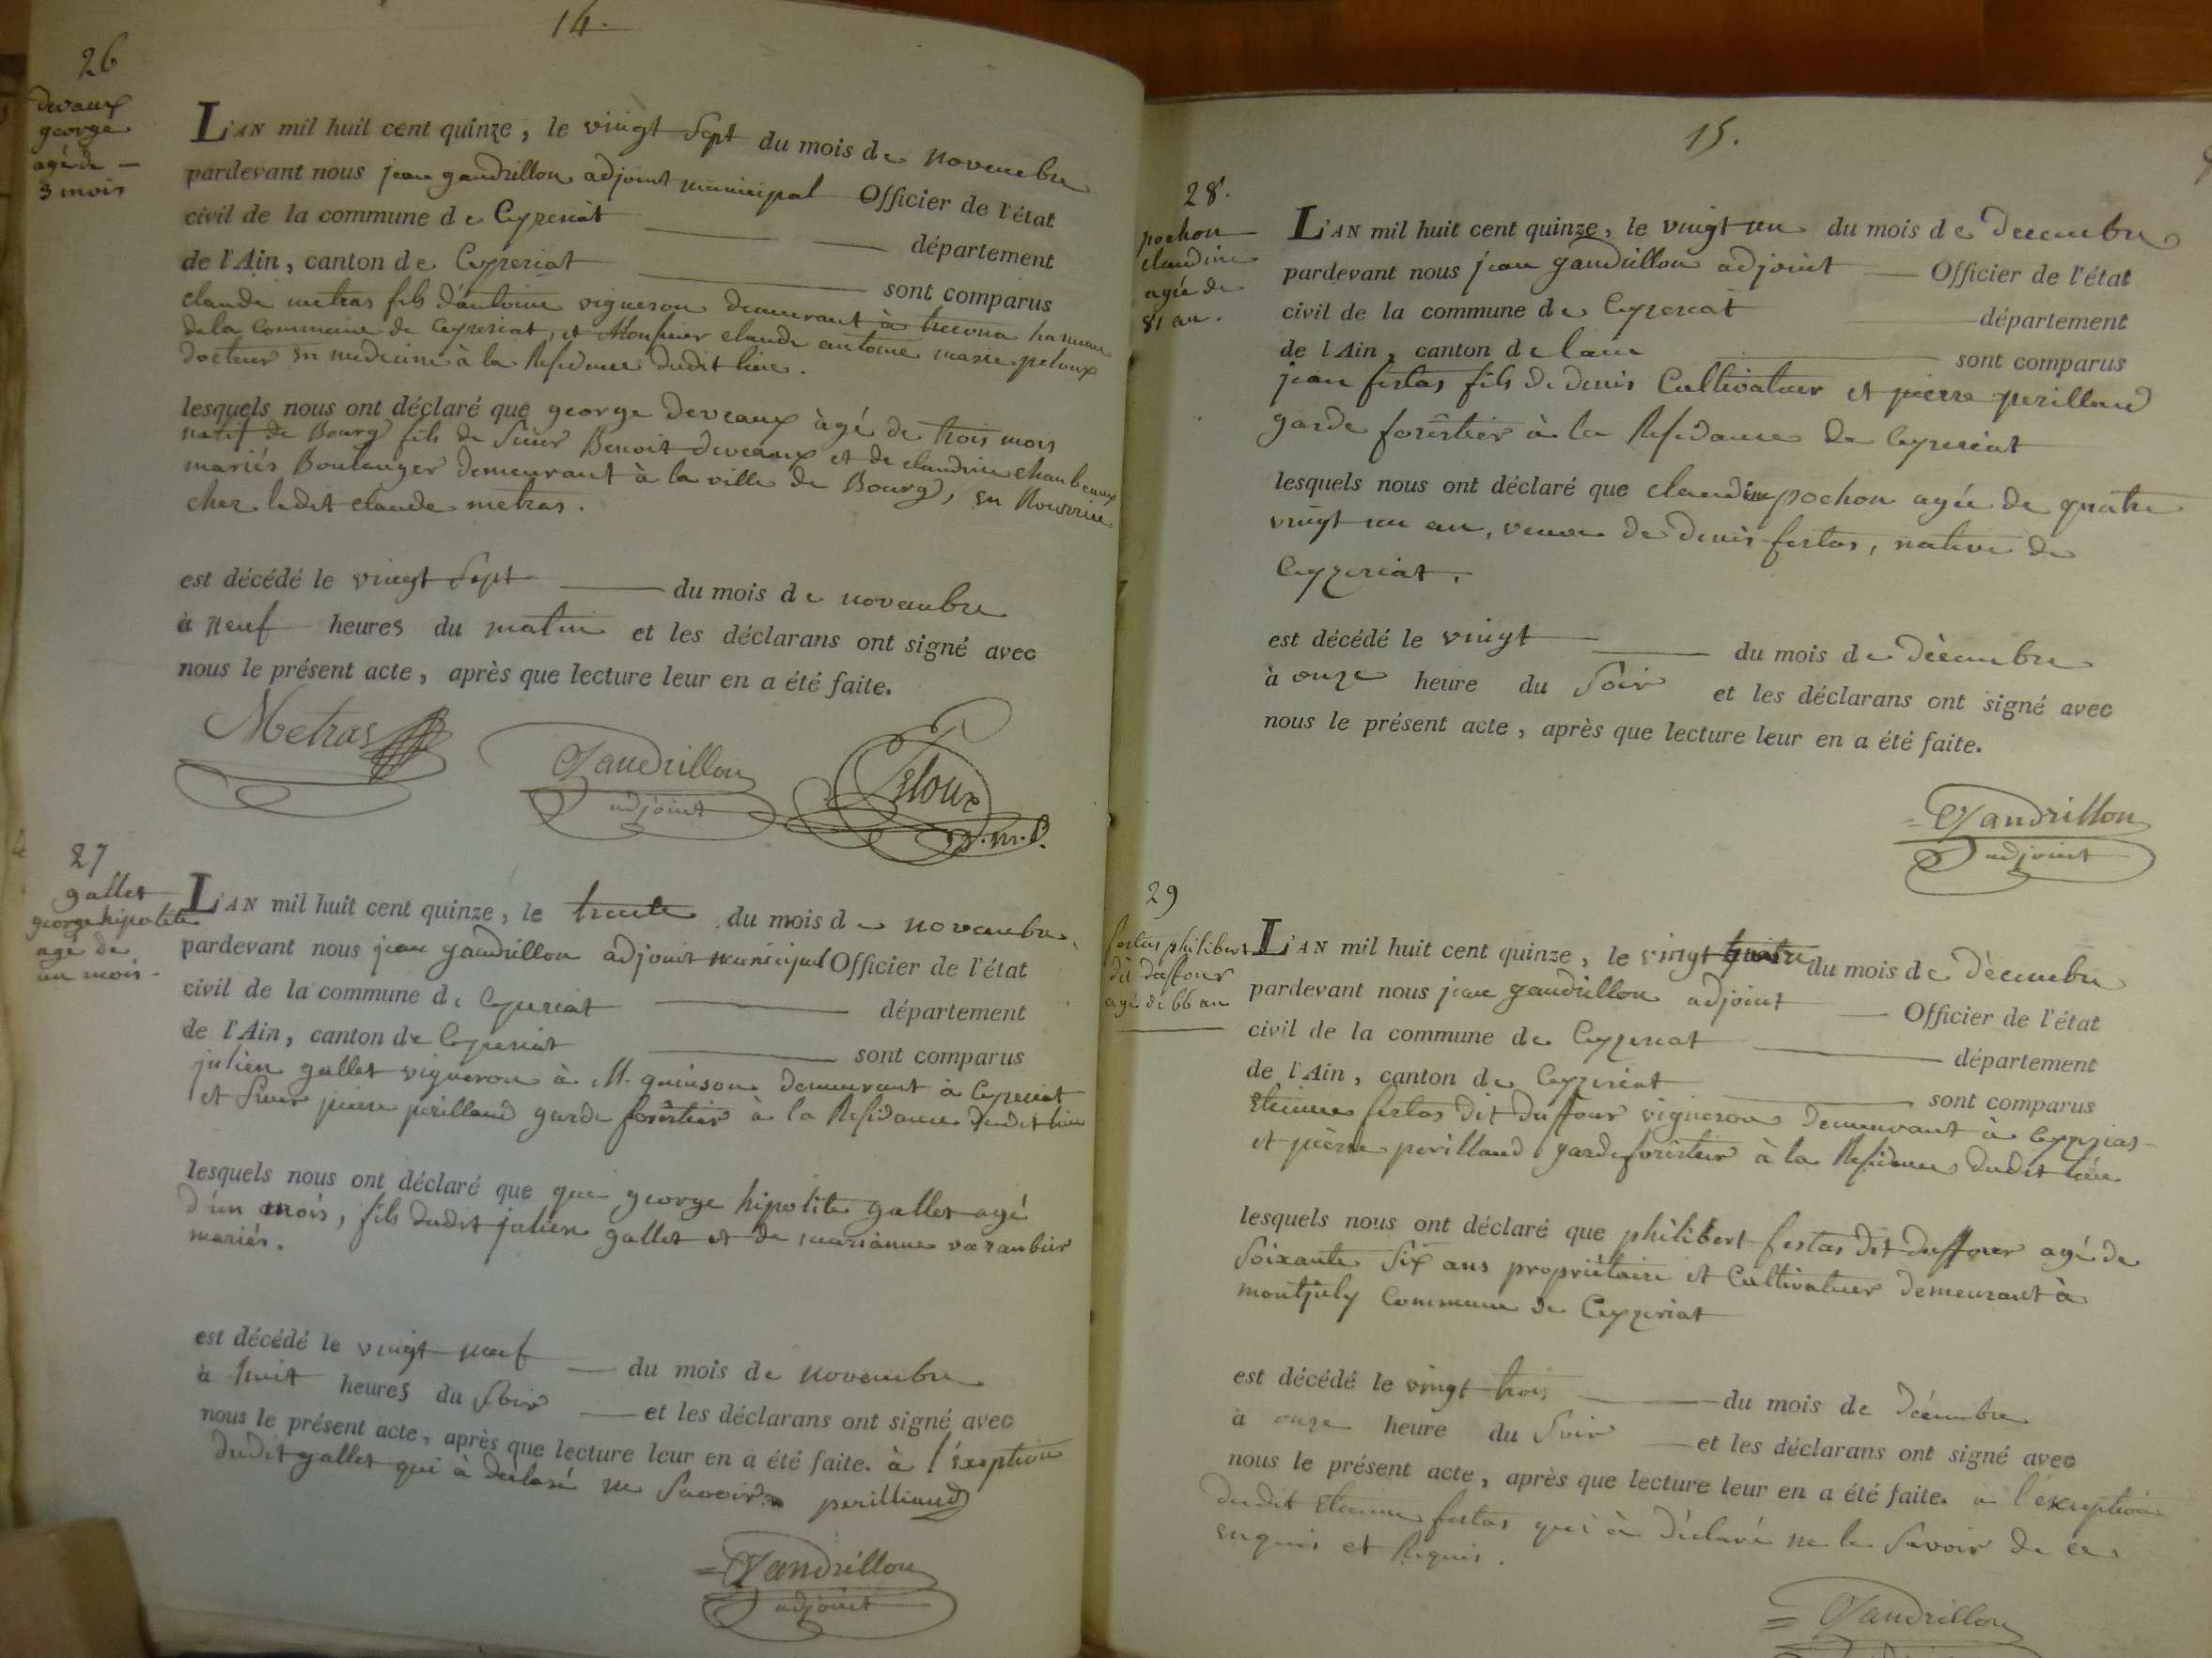 14.
26
devaux
george
agé de —
3 mois
L'AN mil huit cent quinze, le vingt Sept du mois de novembre
pardevant nous jean gandrillon adjoint municipal Officier de l'état
civil de la commune de Ceyzeriat département
de l'Ain, canton de Ceyzeriat sont comparus
claude metras fils d'antoine vigneron demeurant à hameau
de la Commune de Ceyzeriat, et Monsieur claude antoine marie peloux
docteur en medecine à la Residence dudit lieu.
lesquels nous ont déclaré que george deveaux àgé de trois mois
natif de Bourg fils de Sieur Benoit deveaux et de claudine
mariés Boulanger demeurant à la ville de Bourg, en Nourrice
chez ledit claude metras.
est décédé le vingt Sept du mois de novembre
à neuf heures du matin et les déclarans ont signé avec
nous le présent acte, après que lecture leur en a été faite.
Metras
Gandrillon
adjoint
Peloux
D.M.P.
27
gallet
george hipolite
agé de
un mois.
L'AN mil huit cent quinze, le trente du mois de novembre
pardevant nous jean gandrillon adjoint municipal Officier de l'état
civil de la commune de Ceyzeriat département
de l'Ain, canton de Ceyzeriat sont comparus
julien gallet vigneron à M. quinson demeurant à Ceyzeriat
et Sieur pierre perillaud garde forêstier à la Residance dudit lieu
lesquels nous ont déclaré que que george hipolite gallet agé
d'un mois, fils dudit julien gallet et de marianne
mariés.
est décédé le vingt neuf du mois de novembre
à huit heures du Soir et les déclarans ont signé avec
nous le présent acte, après que lecture leur en a été faite. à l'éxeption
dudit gallet qui à déclaré ne Savoir perilliaud
Gandrillon
adjoint
15.
28.
pochon
claudine
agée de
81 an.
L'AN mil huit cent quinze, le vingt un du mois de Decembre
pardevant nous jean gandrillon adjoint Officier de l'état
civil de la commune de Ceyzeriat département
de l'Ain, canton de sont comparus
jean festas fils de denis Cultivateur et pierre perillaud
garde forêstier à la Residance de Ceyzeriat
lesquels nous ont déclaré que claudine pochon agée de quatre
vingt un an, veuve de denis festas, native de
Ceyzeriat.
est décédé le vingt du mois de Décembre
à onze heure du Soir et les déclarans ont signé avec
nous le présent acte, après que lecture leur en a été faite.
Gandrillon
adjoint
29
festas philibert
dit duffour
agé de 66 an
L'AN mil huit cent quinze, le vingt quatre du mois de Décembre
pardevant nous jean gandrillon adjoint Officier de l'état
civil de la commune de Ceyzeriat département
de l'Ain, canton de Ceyzeriat sont comparus
Etienne festas dit duffour vigneron demeurant à Ceyzeriat
et pierre perillaud garde forêstier à la Residence dudit lieu
lesquels nous ont déclaré que philibert festas dit duffour agé de
Soixante Six ans propriétaire et Cultivateur demeurant à
montjuly Commune de Ceyzeriat
est décédé le vingt trois du mois de Décembre
à onze heure du Soir et les déclarans ont signé avec
nous le présent acte, après que lecture leur en a été faite. a l'éxeption
dudit Etienne festas qui à déclaré ne le Savoir de ce
enquis et Requis.
Gandrillon